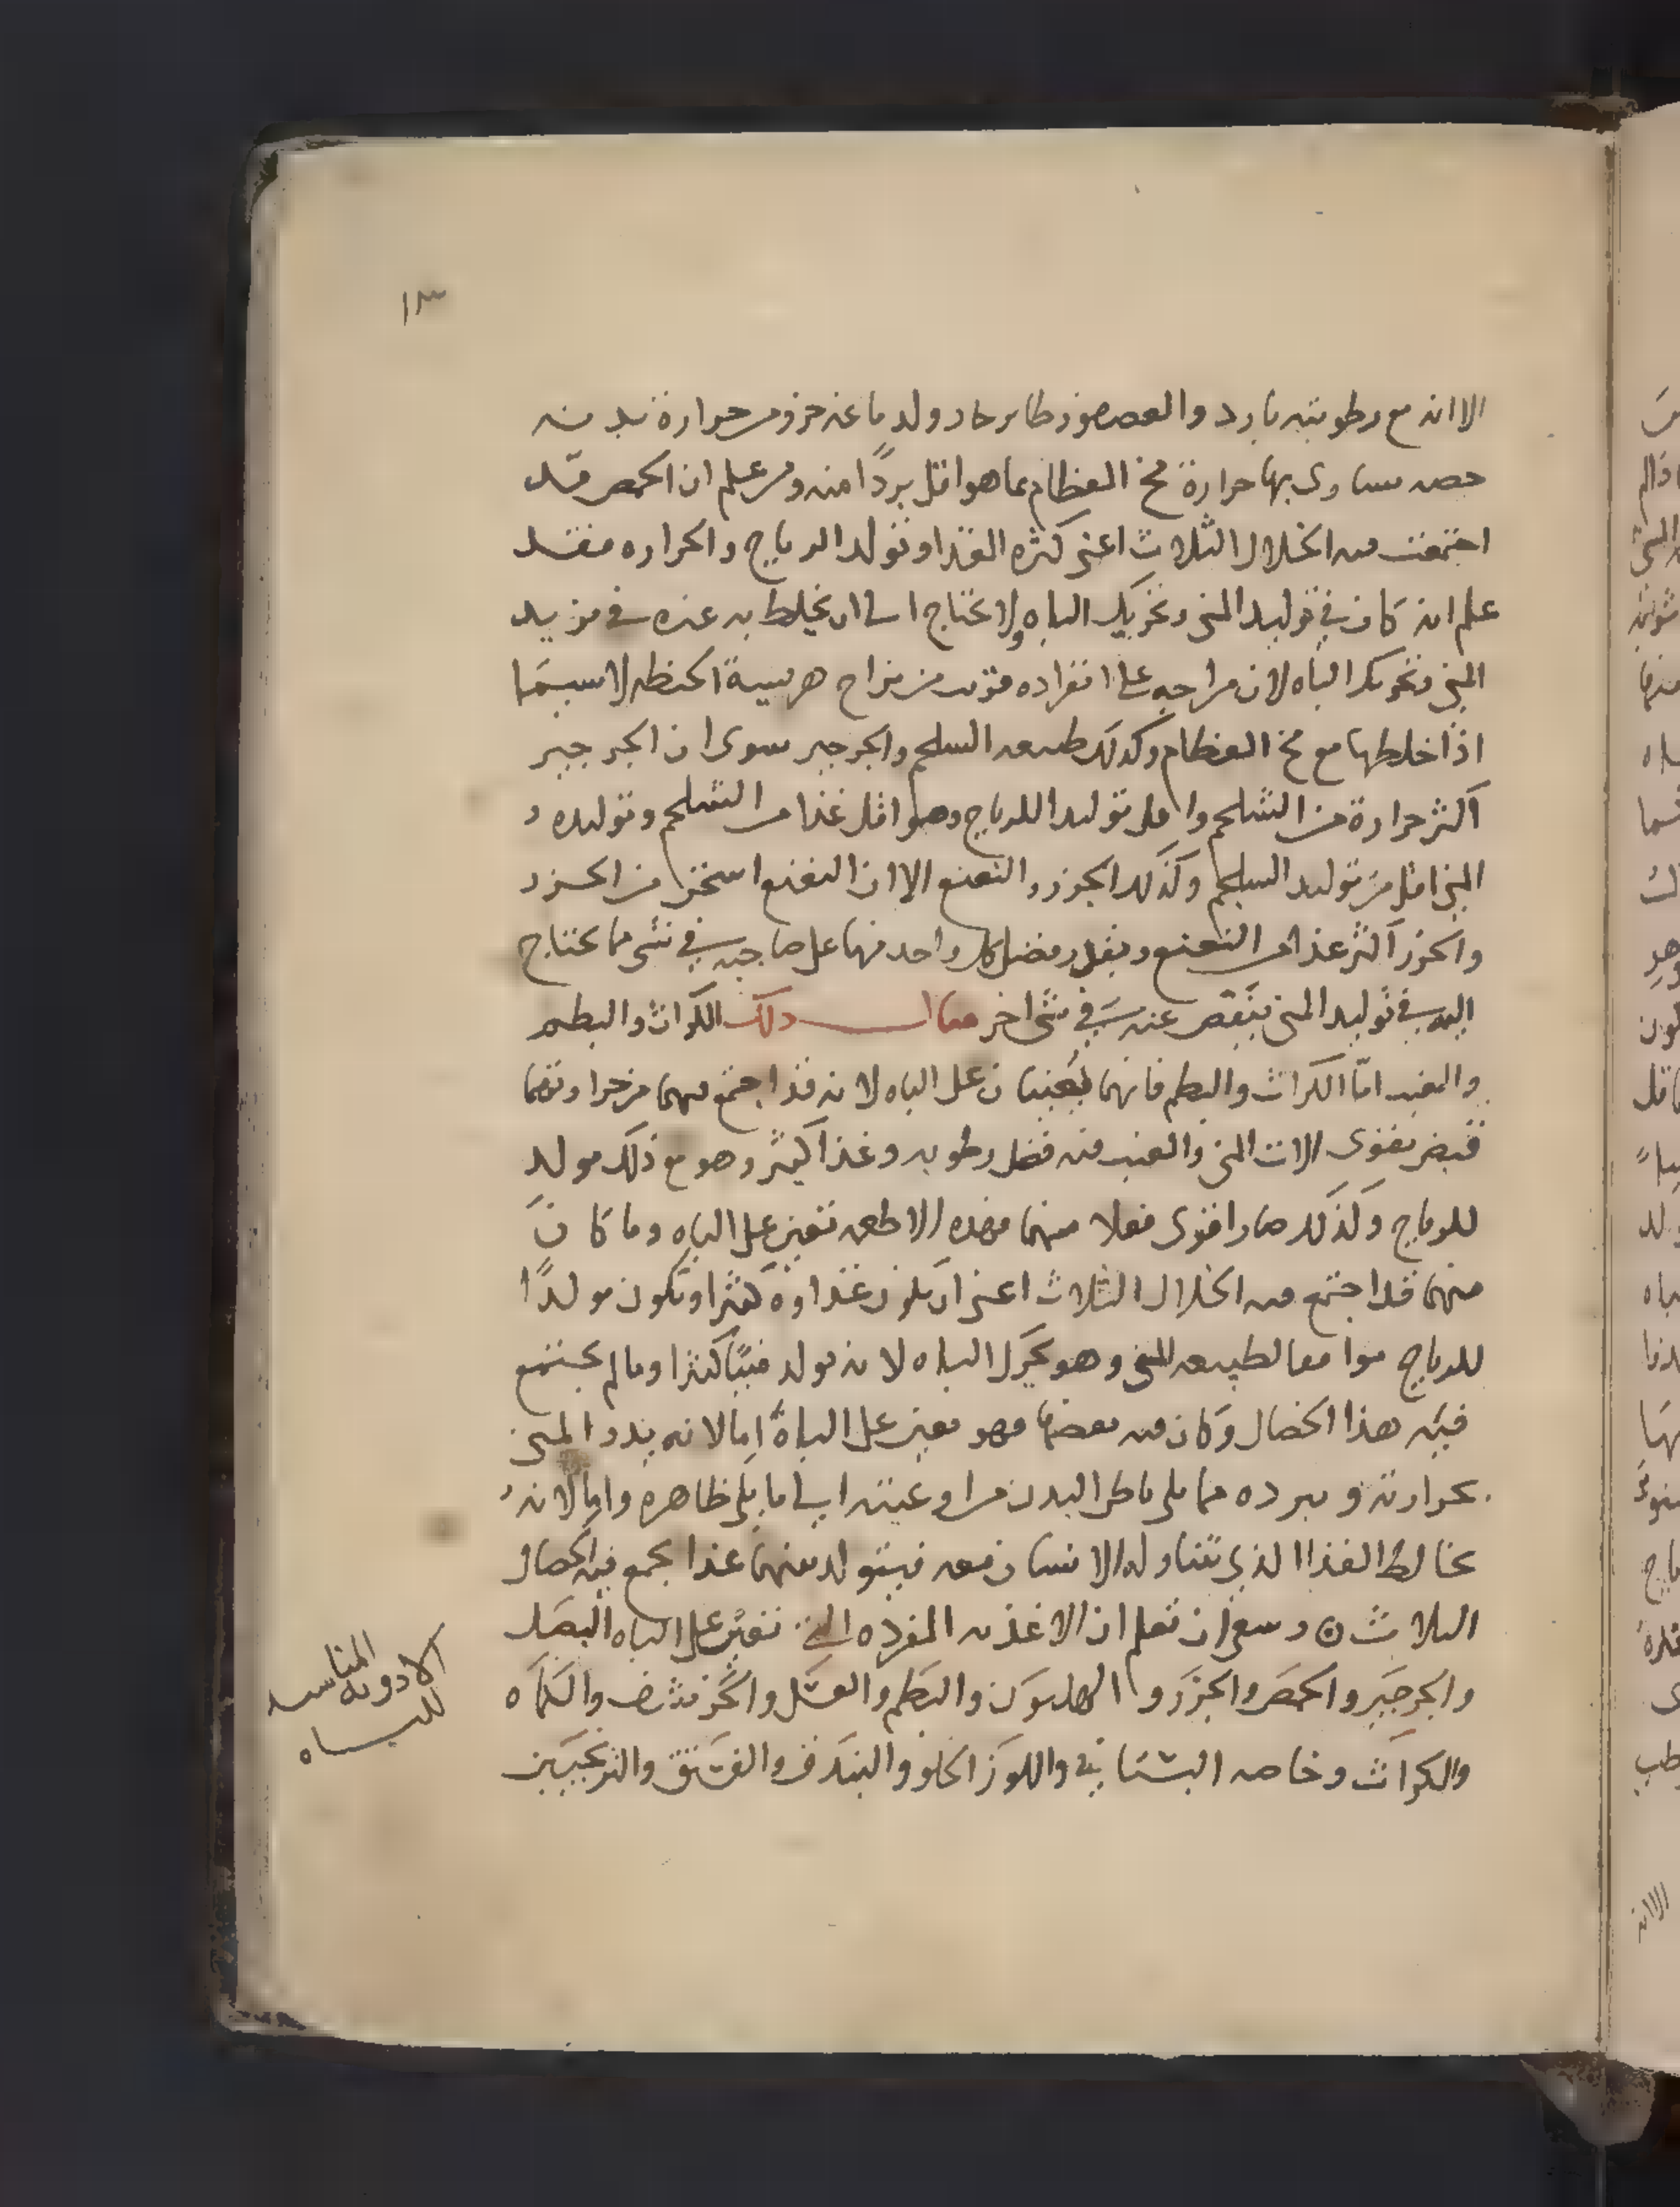 ١٣
الا انه مع رطوبته بارد والعصفور طاير حار ولدماغه جزو من حرارة بدنه
حصه يساوى بها حرارة مخ العظام عما هو اقل بردًا منه ومن علم ان الحمص قد
اجتمعت فيه الخلال الثلاث اعنى كثره الغذا وتولد الرياح والحراره فقد
علم انه كان فى توليد المنى وتحريك الباه ولا يحتاج الى ان يخلط به غيره فى مزيد
المنى وتحريك الباه لان مزاجه على انفراده قريب من مزاج هريسة الحنطه لا سيما
اذا خلطها مع مخ العظام وكذلك طبيعه السلجم والجرجير سوى ان الجرجير
اكثر حرارة من الشلجم واقل توليدا للرياح وهو اقل غذا من الشلجم وتوليده
المنى اقل من توليد السلجم وكذلك الجزر والنعنع الا ان النعنع اسخن من الجزر
والجزر اكثر غذا من النعنع وبقدر فضل كل واحد منهما على صاحبه فى شى مما يحتاج
اليه فى توليد المنى ينقص عنه فى شى اخر مثال ذلك الكراث والبطم
والعنب اما الكراث والبطم فانهما يعينان على الباه لانه قد اجتمع فيهما مع حرارتهما
قبض يقوى الات المنى والعنب فيه فضل رطوبه وغذا كثير وهو مع ذلك مولد
للرياح ولذلك صار اقوى فعلا منهما فهذه الاطعمه تعين على الباه وما كان
منهما قد اجتمع فيه الخلال الثلاث اعنى ان يكون غذاوه كثيرا ويكون مولدًا
للرياح موافقا لطبيعه المنى وهو يحرك الباه لانه يولد منيًا كثيرا وما لم يجتمع
فيه هذا الخصال وكان فيه بعضها فهو معين على الباه اما لانه يدر المنى
بحرارته ويبرده مما يلى باطن البدن من اوعيته الى ما يلى ظاهره واما لانه
يخالط الغذا الذى يتناوله الانسان معه فيتولد منهما غذا يجمع فيه الخصال
الثلاث وينبغى ان تعلم ان الاغذيه المفرده التى تعين على الباه البصل
والجرجير والحمص والجزر والهليون والبطم والعسل والحرشف والكماه
والكراث وخاصه البستانى واللوز الحلو والبندق والفستق والترنجبين
الادويه المناسبه
للباه